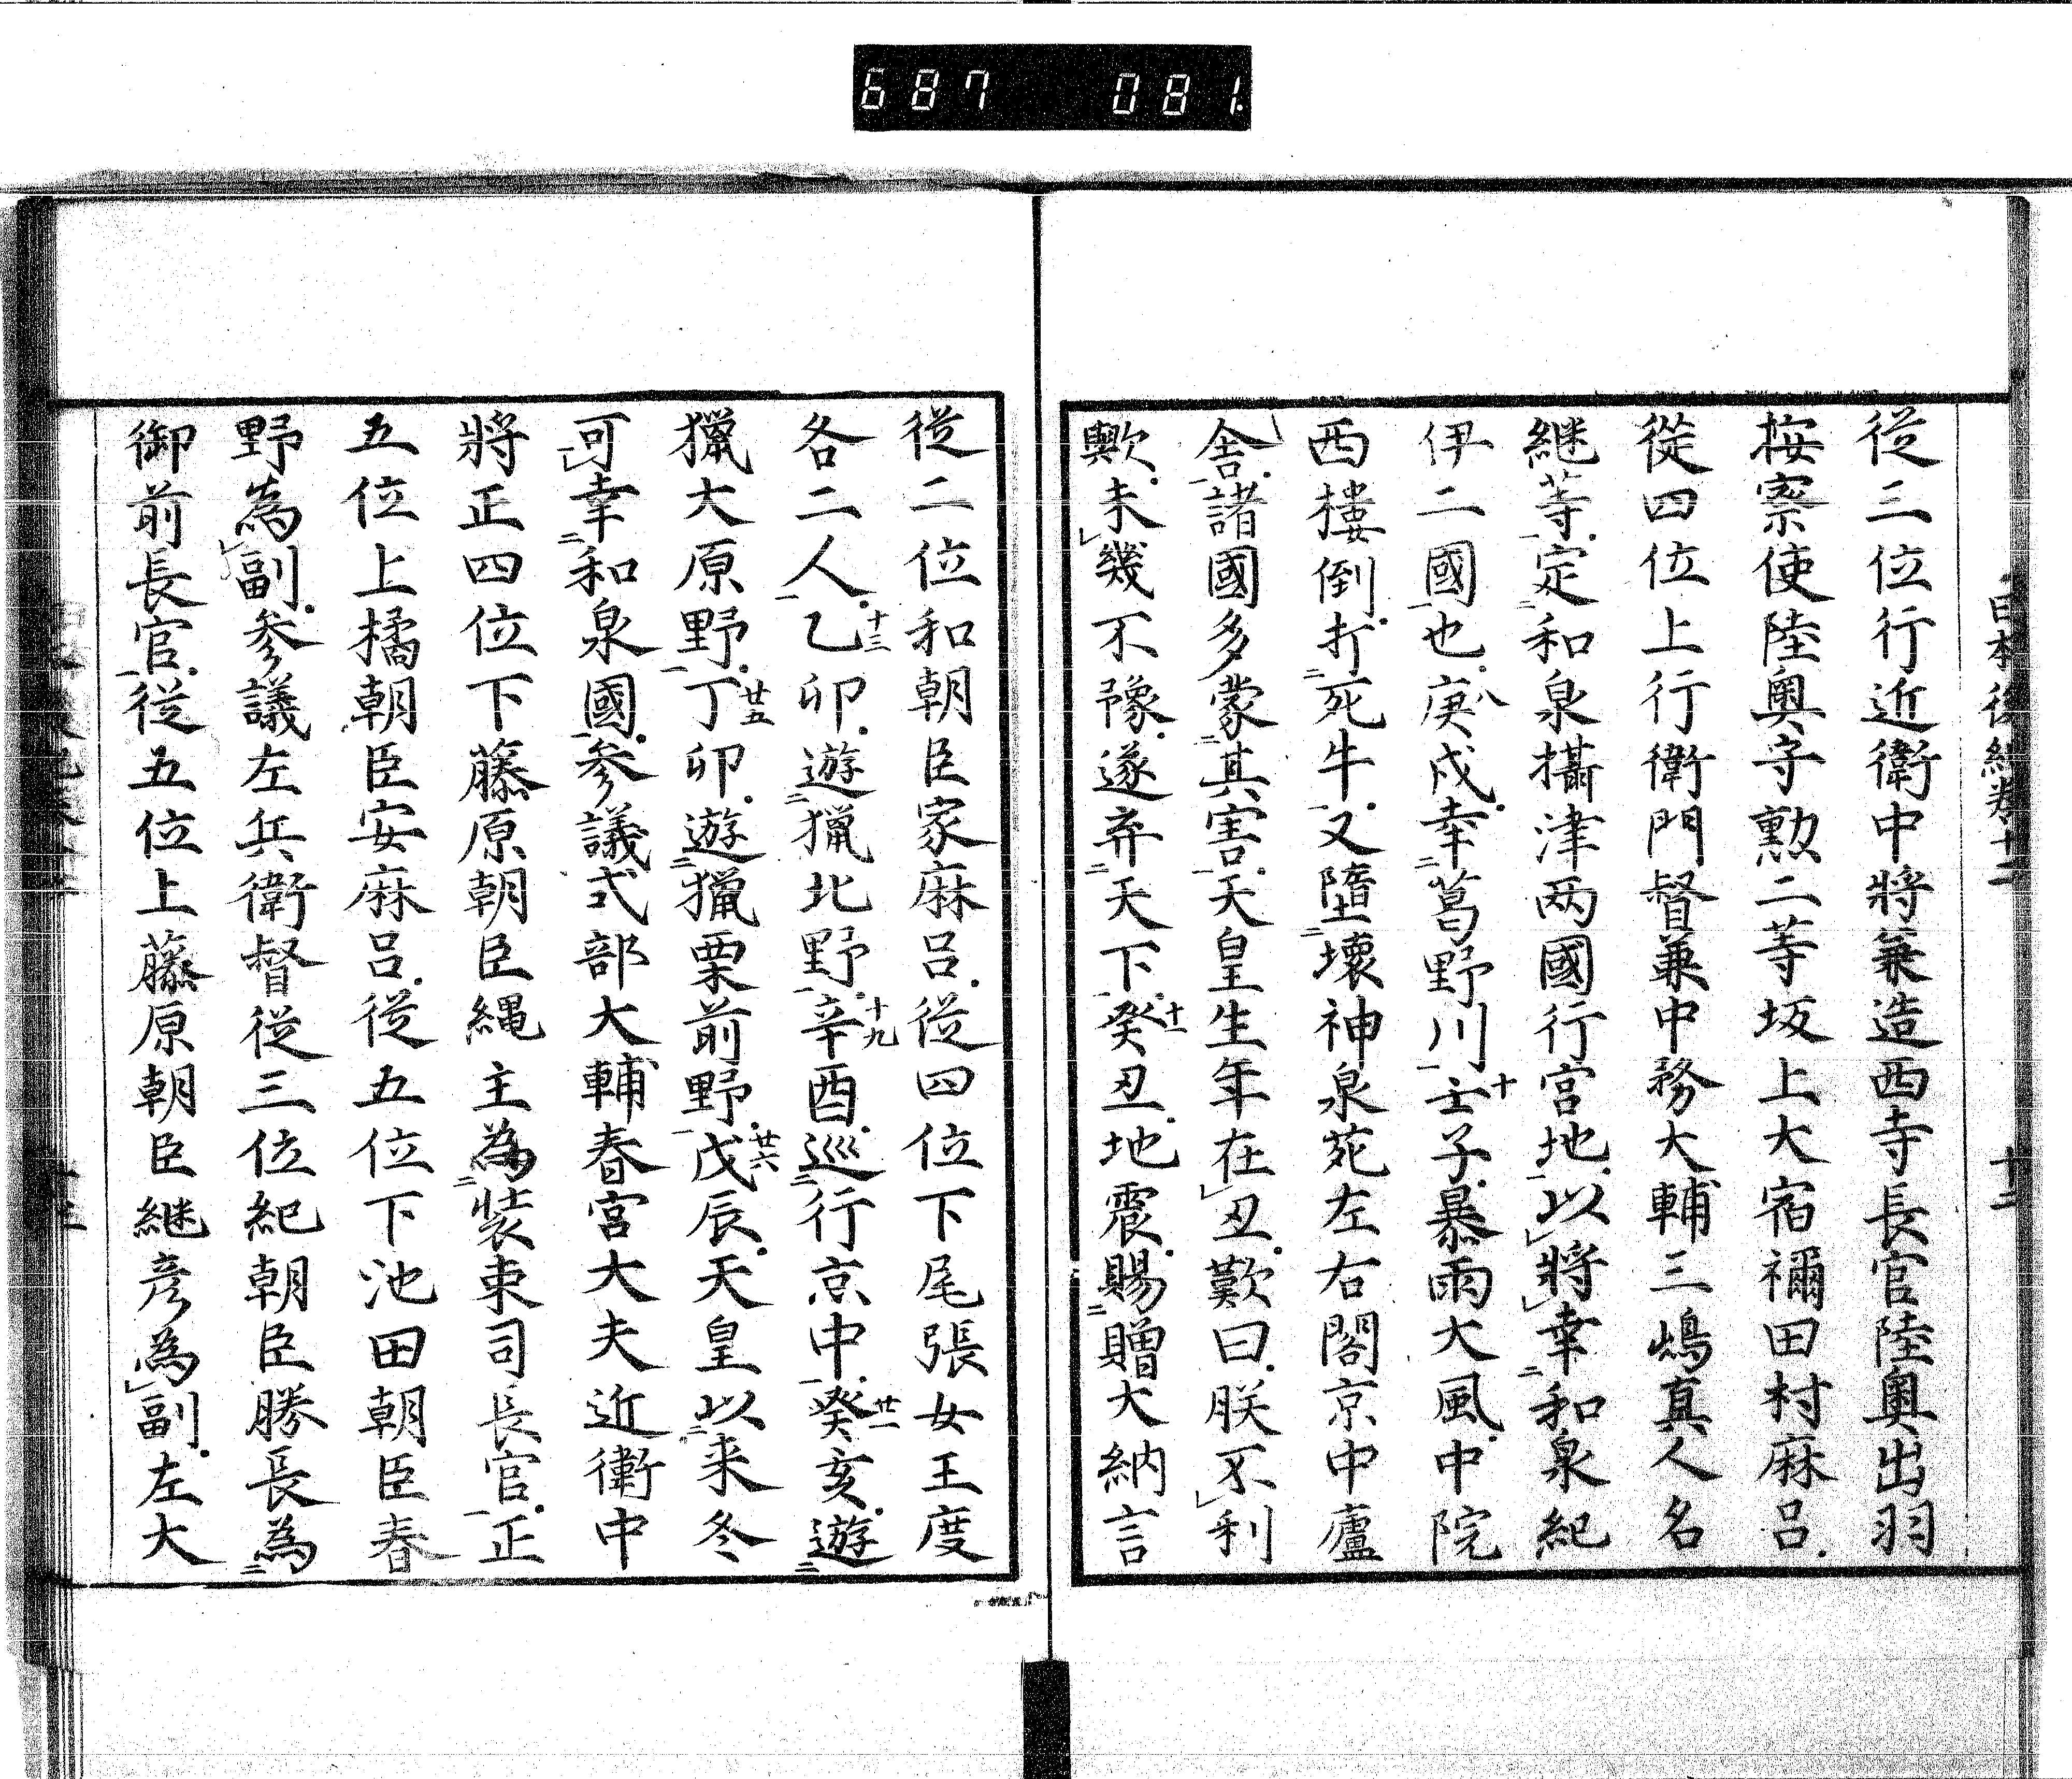 687 081
従三位行近衛中將兼造西寺長官陸奧出羽
按察使陸奧守勲二等坂上大宿禰田村麻呂
從四位上行衛門督兼中務大輔三嶋真人名
継等定和泉攝津两國行宮地以將幸和泉紀
伊二國也八庚戌幸葛野川十壬子暴雨大風中院
西樓倒打死牛又墮壞神泉苑左右閣京中廬
舍諸國多蒙其害天皇生年在丑歎曰朕不利
歟未幾不豫遂弃天下十一癸丑地震賜贈大納言
従二位和朝臣家麻呂従四位下尾張女王度
各二人十三乙卯遊猟北野十九辛酉巡行京中廿一癸亥遊
獵大原野廿五丁卯遊獵栗前野廿六戊辰天皇以来冬
可幸和泉國參議式部大輔春宮大夫近衛中
將正四位下藤原朝臣縄主為装束司長官正
五位上橘朝臣安麻呂従五位下池田朝臣春
野為副參議左兵衛督従三位紀朝臣勝長為
御前長官従五位上藤原朝臣継彦為副左大